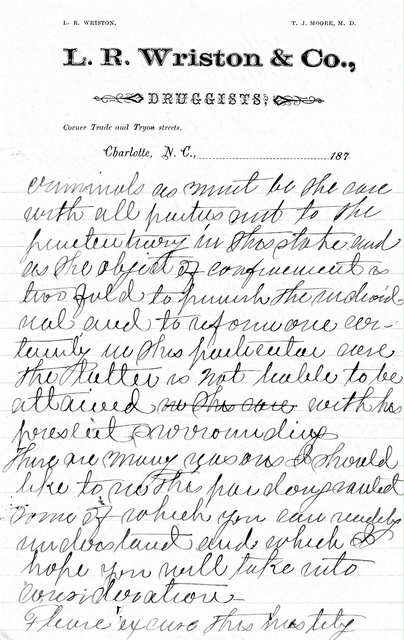 L. R. WRISTON. T. J. MOORE, M. D.
L. R. Wriston & Co.,
DRUGGISTS,
Corner Trade and Tryon streets.
Charlotte, N. C., 187
criminals as must be the case
with all parties sent to the
penetentiary in this state and
as the object of confinement is
two fold to punish the individ
ual and to reform one cer-
tainly in this particular case
the latter is not liable to be
attained in this case with his
present surroundings
There are many reasons I should
like to see this pardon granted
some of which you can readily
understand and which I
hope you will take into
consideration
Please excuse this hastily